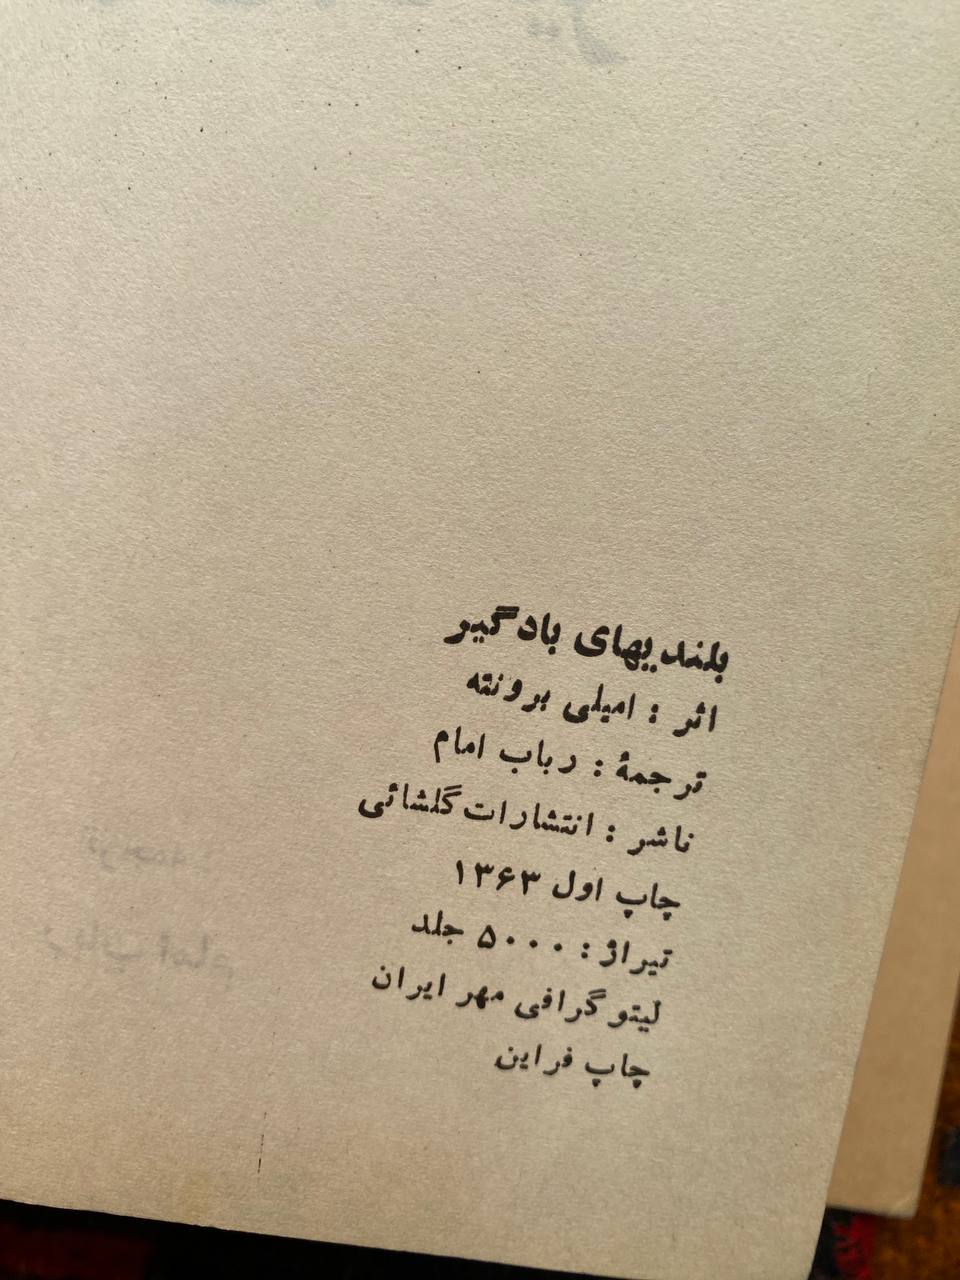 بلندیهای بادگیر
اثر : امیلی برونته
ترجمهٔ : رباب امام
ناشر : انتشارات گلشائی
چاپ اول ۱۳۶۳
تیراژ : ۵۰۰۰ جلد
لیتو گرافی مهر ایران
چاپ فراین